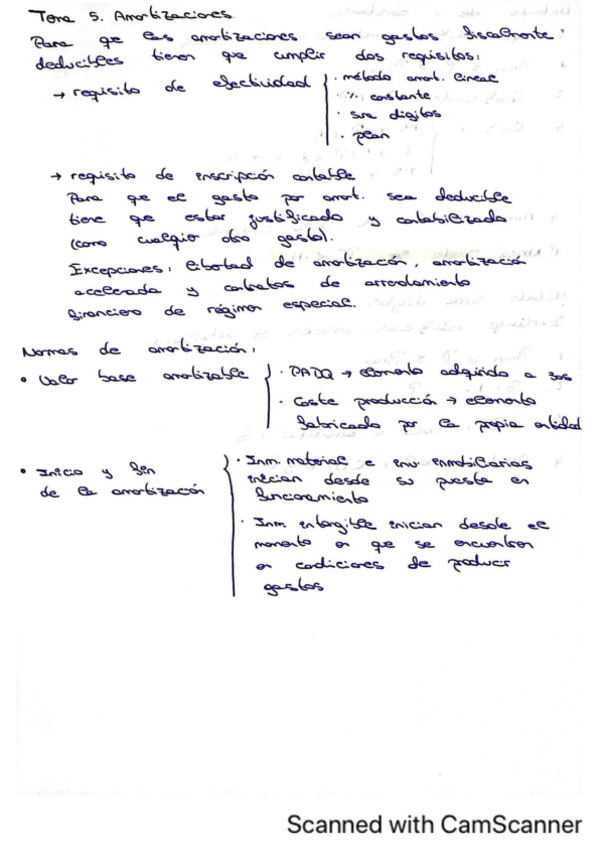 Tema 5. Amortizaciones.
Para que las amortizaciones sean gastos fiscalmente
deducibles tienen que cumplir dos requisitos:
→ requisito de efectividad
· método amort. lineal
· % constante
· suma dígitos
· plan
→ requisito de inscripción contable
Para que el gasto por amort. sea deducible
tiene que estar justificado y contabilizado
(como cualquier otro gasto).
Excepciones: libertad de amortización, amortización
acelerada y contratos de arrendamiento
financiero de régimen especial.
Normas de amortización:
• Valor base amortizable
· PADQ → elemento adquirido a 3os
· Coste producción → elemento
fabricado por la propia entidad
• Inicio y fin
de la amortización
· Inm. material e inv. inmobiliarias
inician desde su puesta en
funcionamiento
· Inm intangible inician desde el
momento en que se encuentran
en condiciones de producir
gastos
Scanned with CamScanner